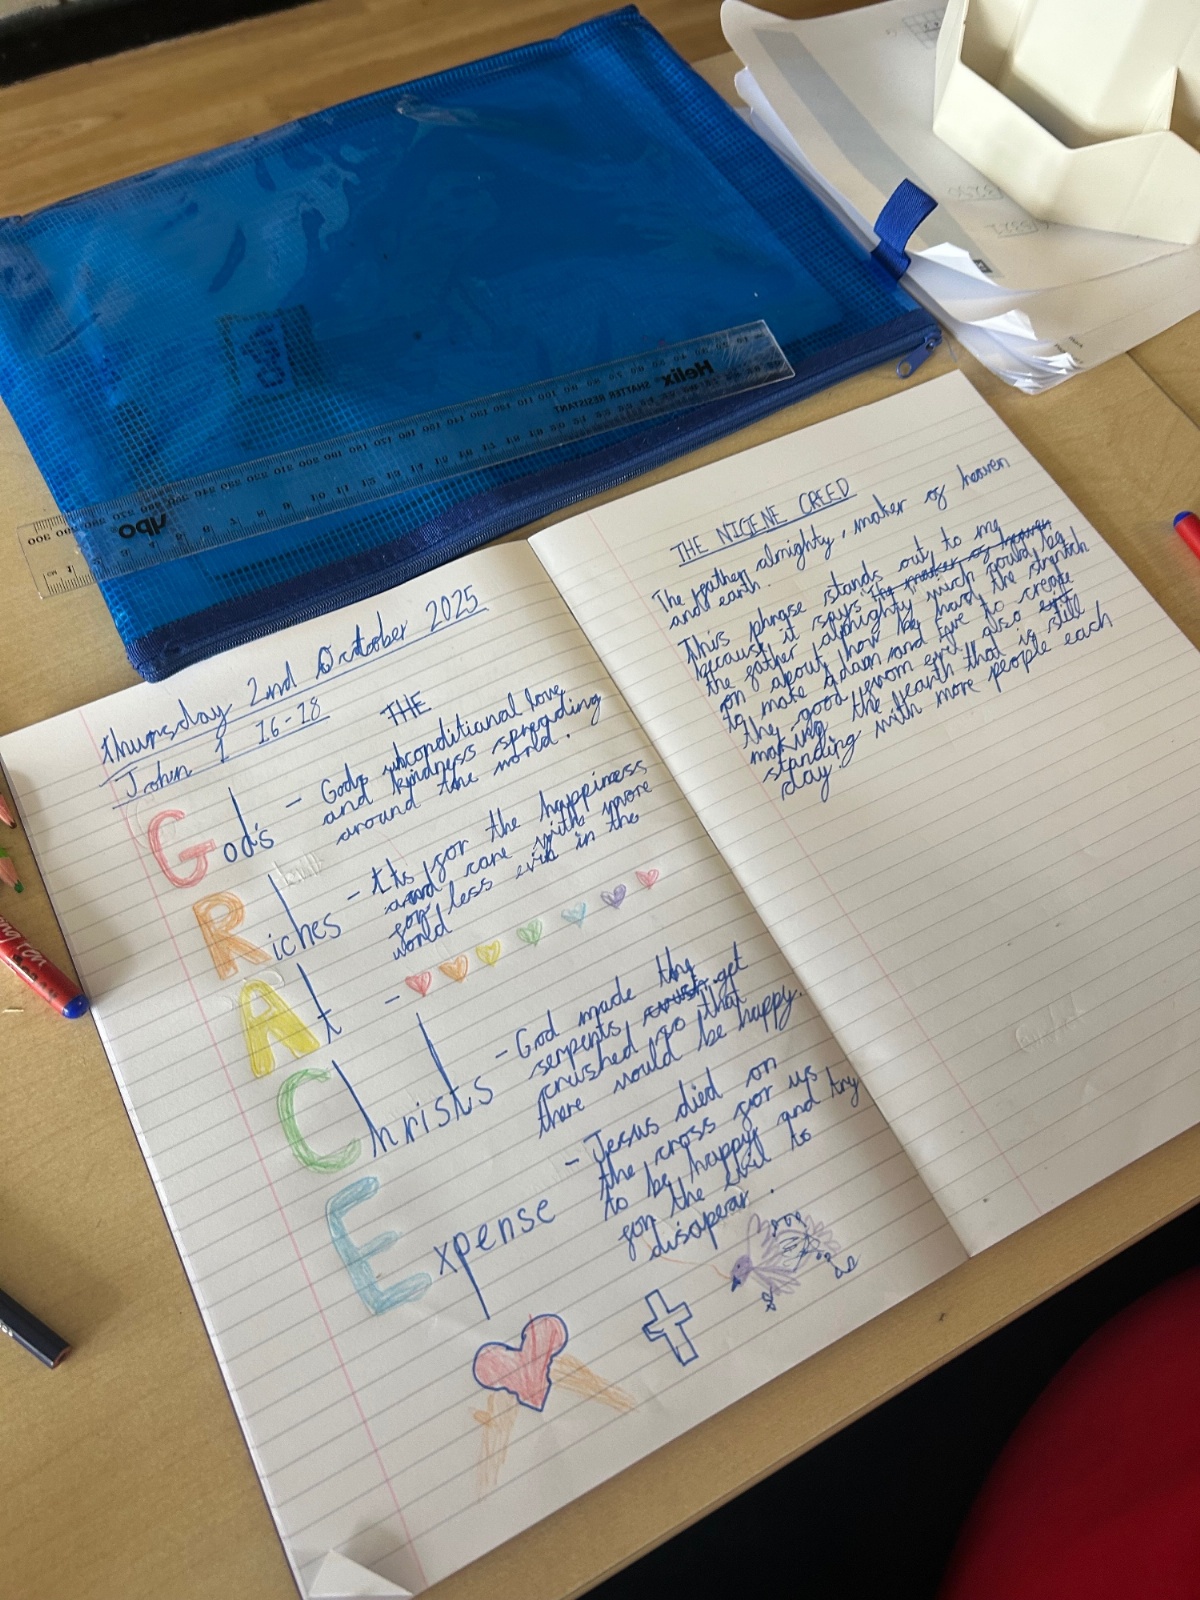 Thursday 2nd October 2025
John 1 16-18
THE
God's - Gods unconditional love
and kindness spreading
around the world.
Riches - Its for the happiness
and care with more
for less evil in the
world
At -
Christs - God made the
serpents get
crushed so that
there would be happy.
Expense - Jesus died on
the cross for us
to be happy and try
for the evil to
disapear.
THE NICENE CREED
The father almighty, maker of heaven
and earth.
This phrase stands out to me
because it says maker of heaven
the father almighty wich could be
on about how he had the strentch
to make Adam and Eve to create
the good from evil also
making the earth that is still
standing with more people each
day.
Helix
SHATTER RESISTANT